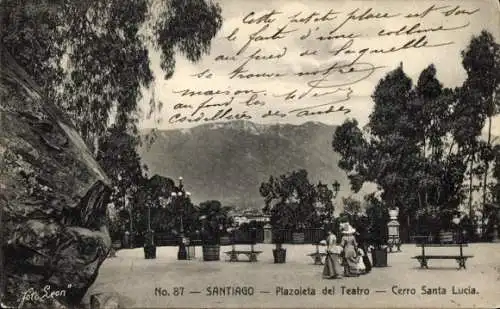 Cette petite place est sur
le front d'une colline
au pied de laquelle
se trouve notre
maison, et le
au fond les
cordillères des Andes
Foto Leon
No. 87 — SANTIAGO — Plazoleta del Teatro — Cerro Santa Lucia.